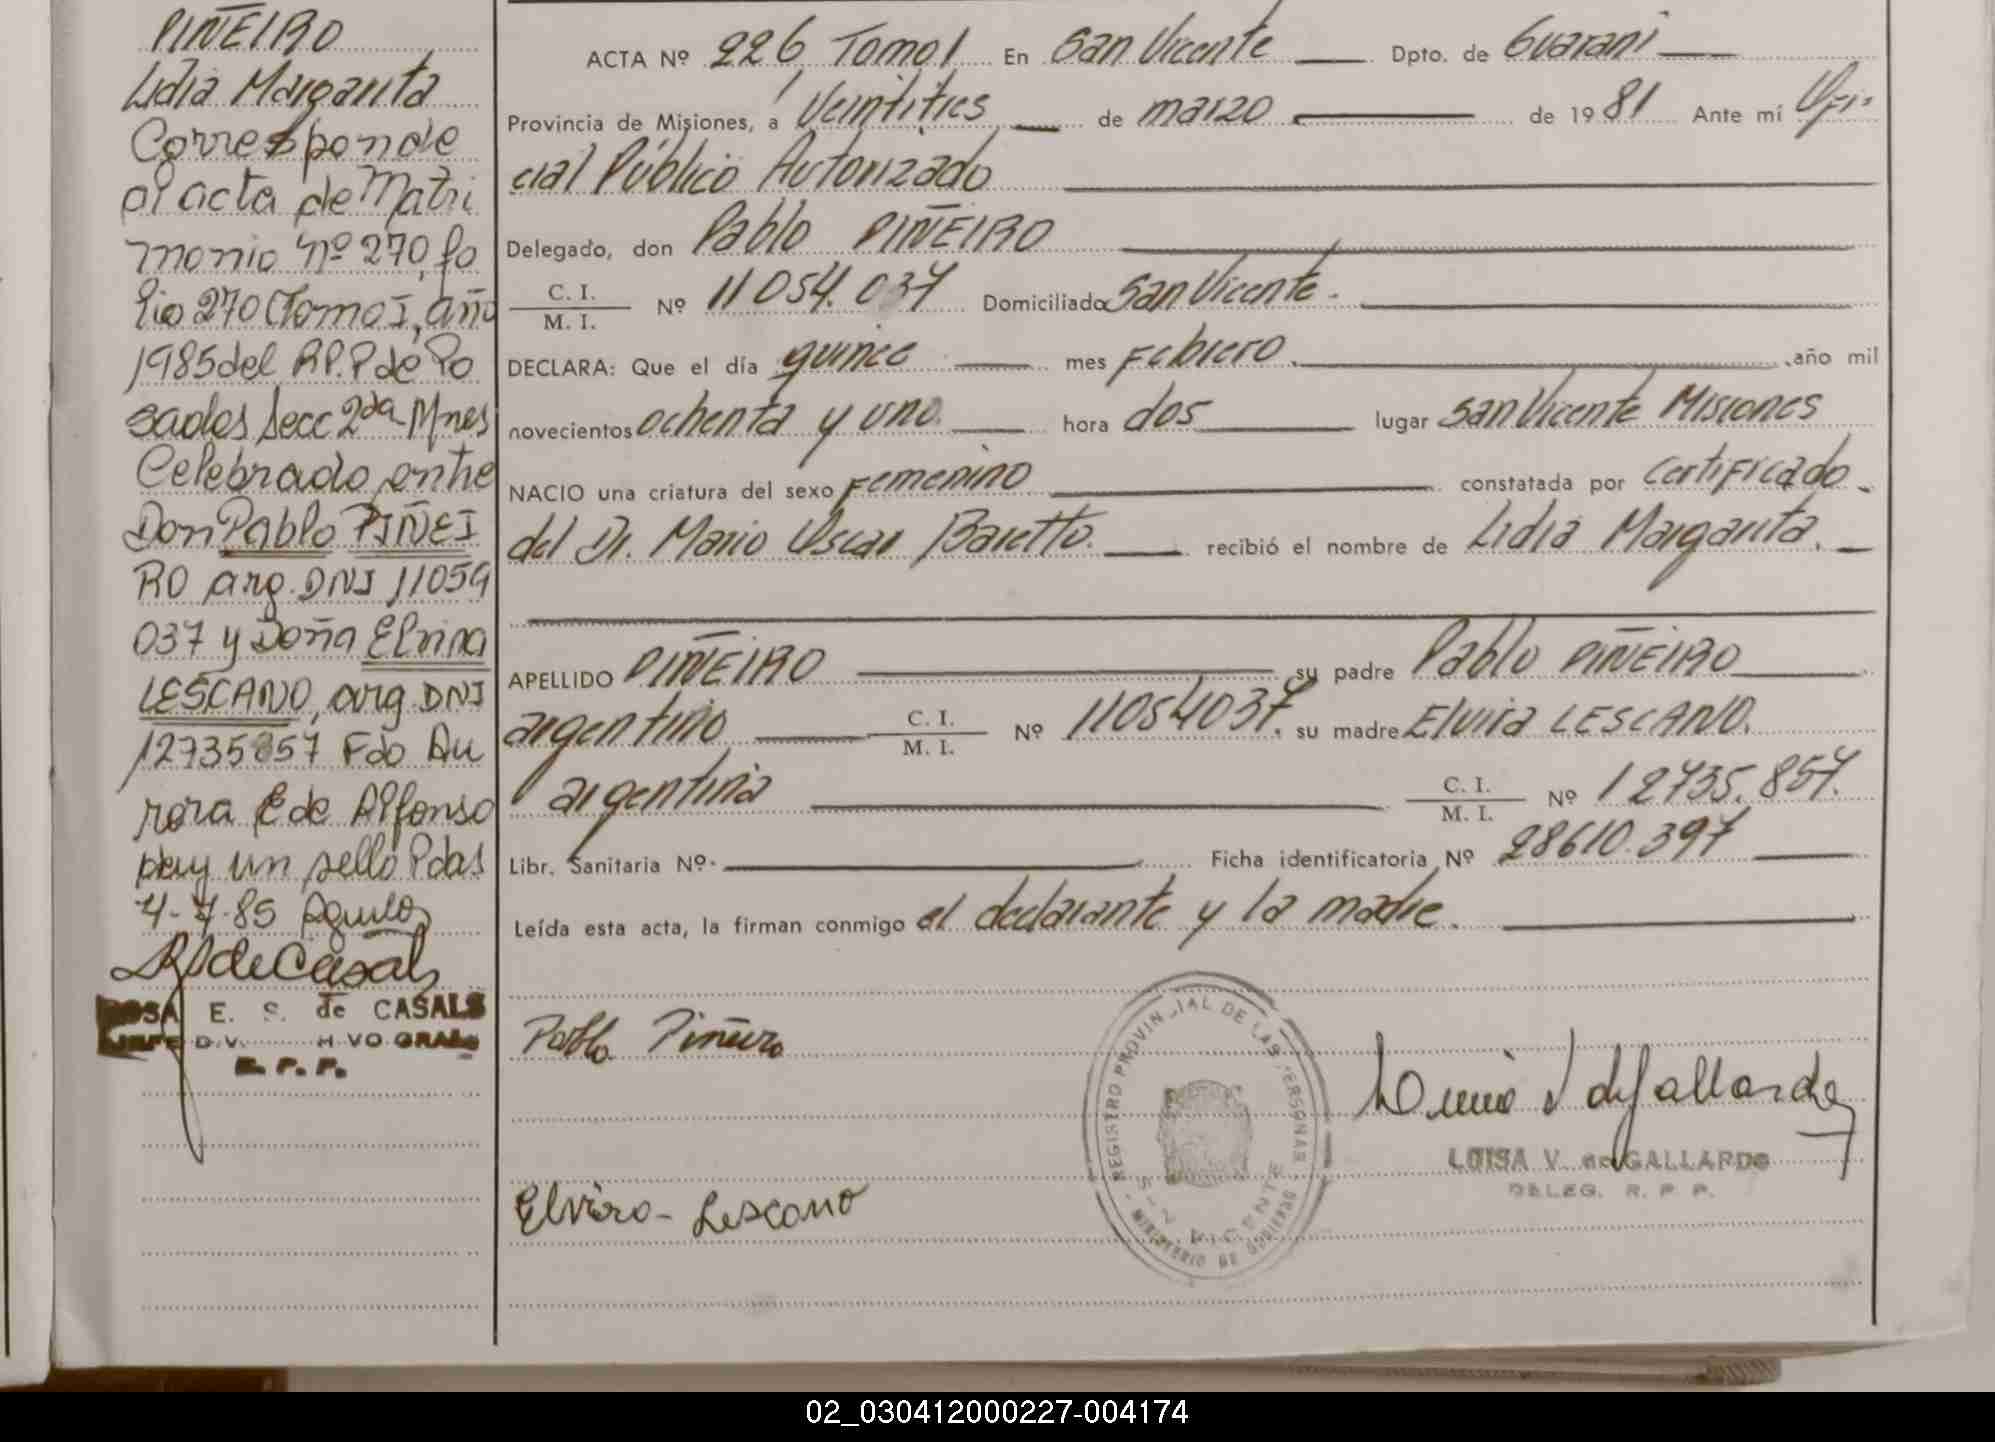 PIÑEIRO
Lidia Margarita
Corresponde
al acta de Matri
monio Nº 270, fo
lio 270 (Tomo I, año
1985 del R.P.P de Po
sadas Secc 2da Mnes
Celebrado entre
Don Pablo PIÑEI
RO arg. DNI 11054
037 y Doña Elvira
LESCANO, arg. DNI
12735857 Fdo Au
rora E de Alfonso
hay un sello Pdas
4-7-85
ROSA E. S. de CASALS
R. P. P.
ACTA Nº 226 Tomo I En San Vicente Dpto. de Guarani
Provincia de Misiones, a Veintitres de marzo de 1981 Ante mí Ofi-
cial Público Autorizado
Delegado, don Pablo PIÑEIRO
C. I.
M. I. Nº 11054.037 Domiciliado San Vicente.
DECLARA: Que el día quince mes Febrero. año mil
novecientos ochenta y uno. hora dos lugar San Vicente Misiones
NACIO una criatura del sexo Femenino constatada por Certificado
del Dr. Mario Oscar Baretto. recibió el nombre de Lidia Margarita.
APELLIDO PIÑEIRO su padre Pablo PIÑEIRO
argentino C. I. M. I. Nº 11054037. su madre Elvira LESCANO.
argentina C. I. M. I. Nº 12735.857.
Libr. Sanitaria Nº Ficha identificatoria Nº 28610.397
Leída esta acta, la firman conmigo el declarante y la madre.
Pablo Piñeiro
REGISTRO PROVINCIAL DE LAS PERSONAS
SAN VICENTE
MINISTERIO DE GOBIERNO
LUISA V. de GALLARDO
DELEG. R. P. P.
Elvira - Lescano
02_030412000227-004174